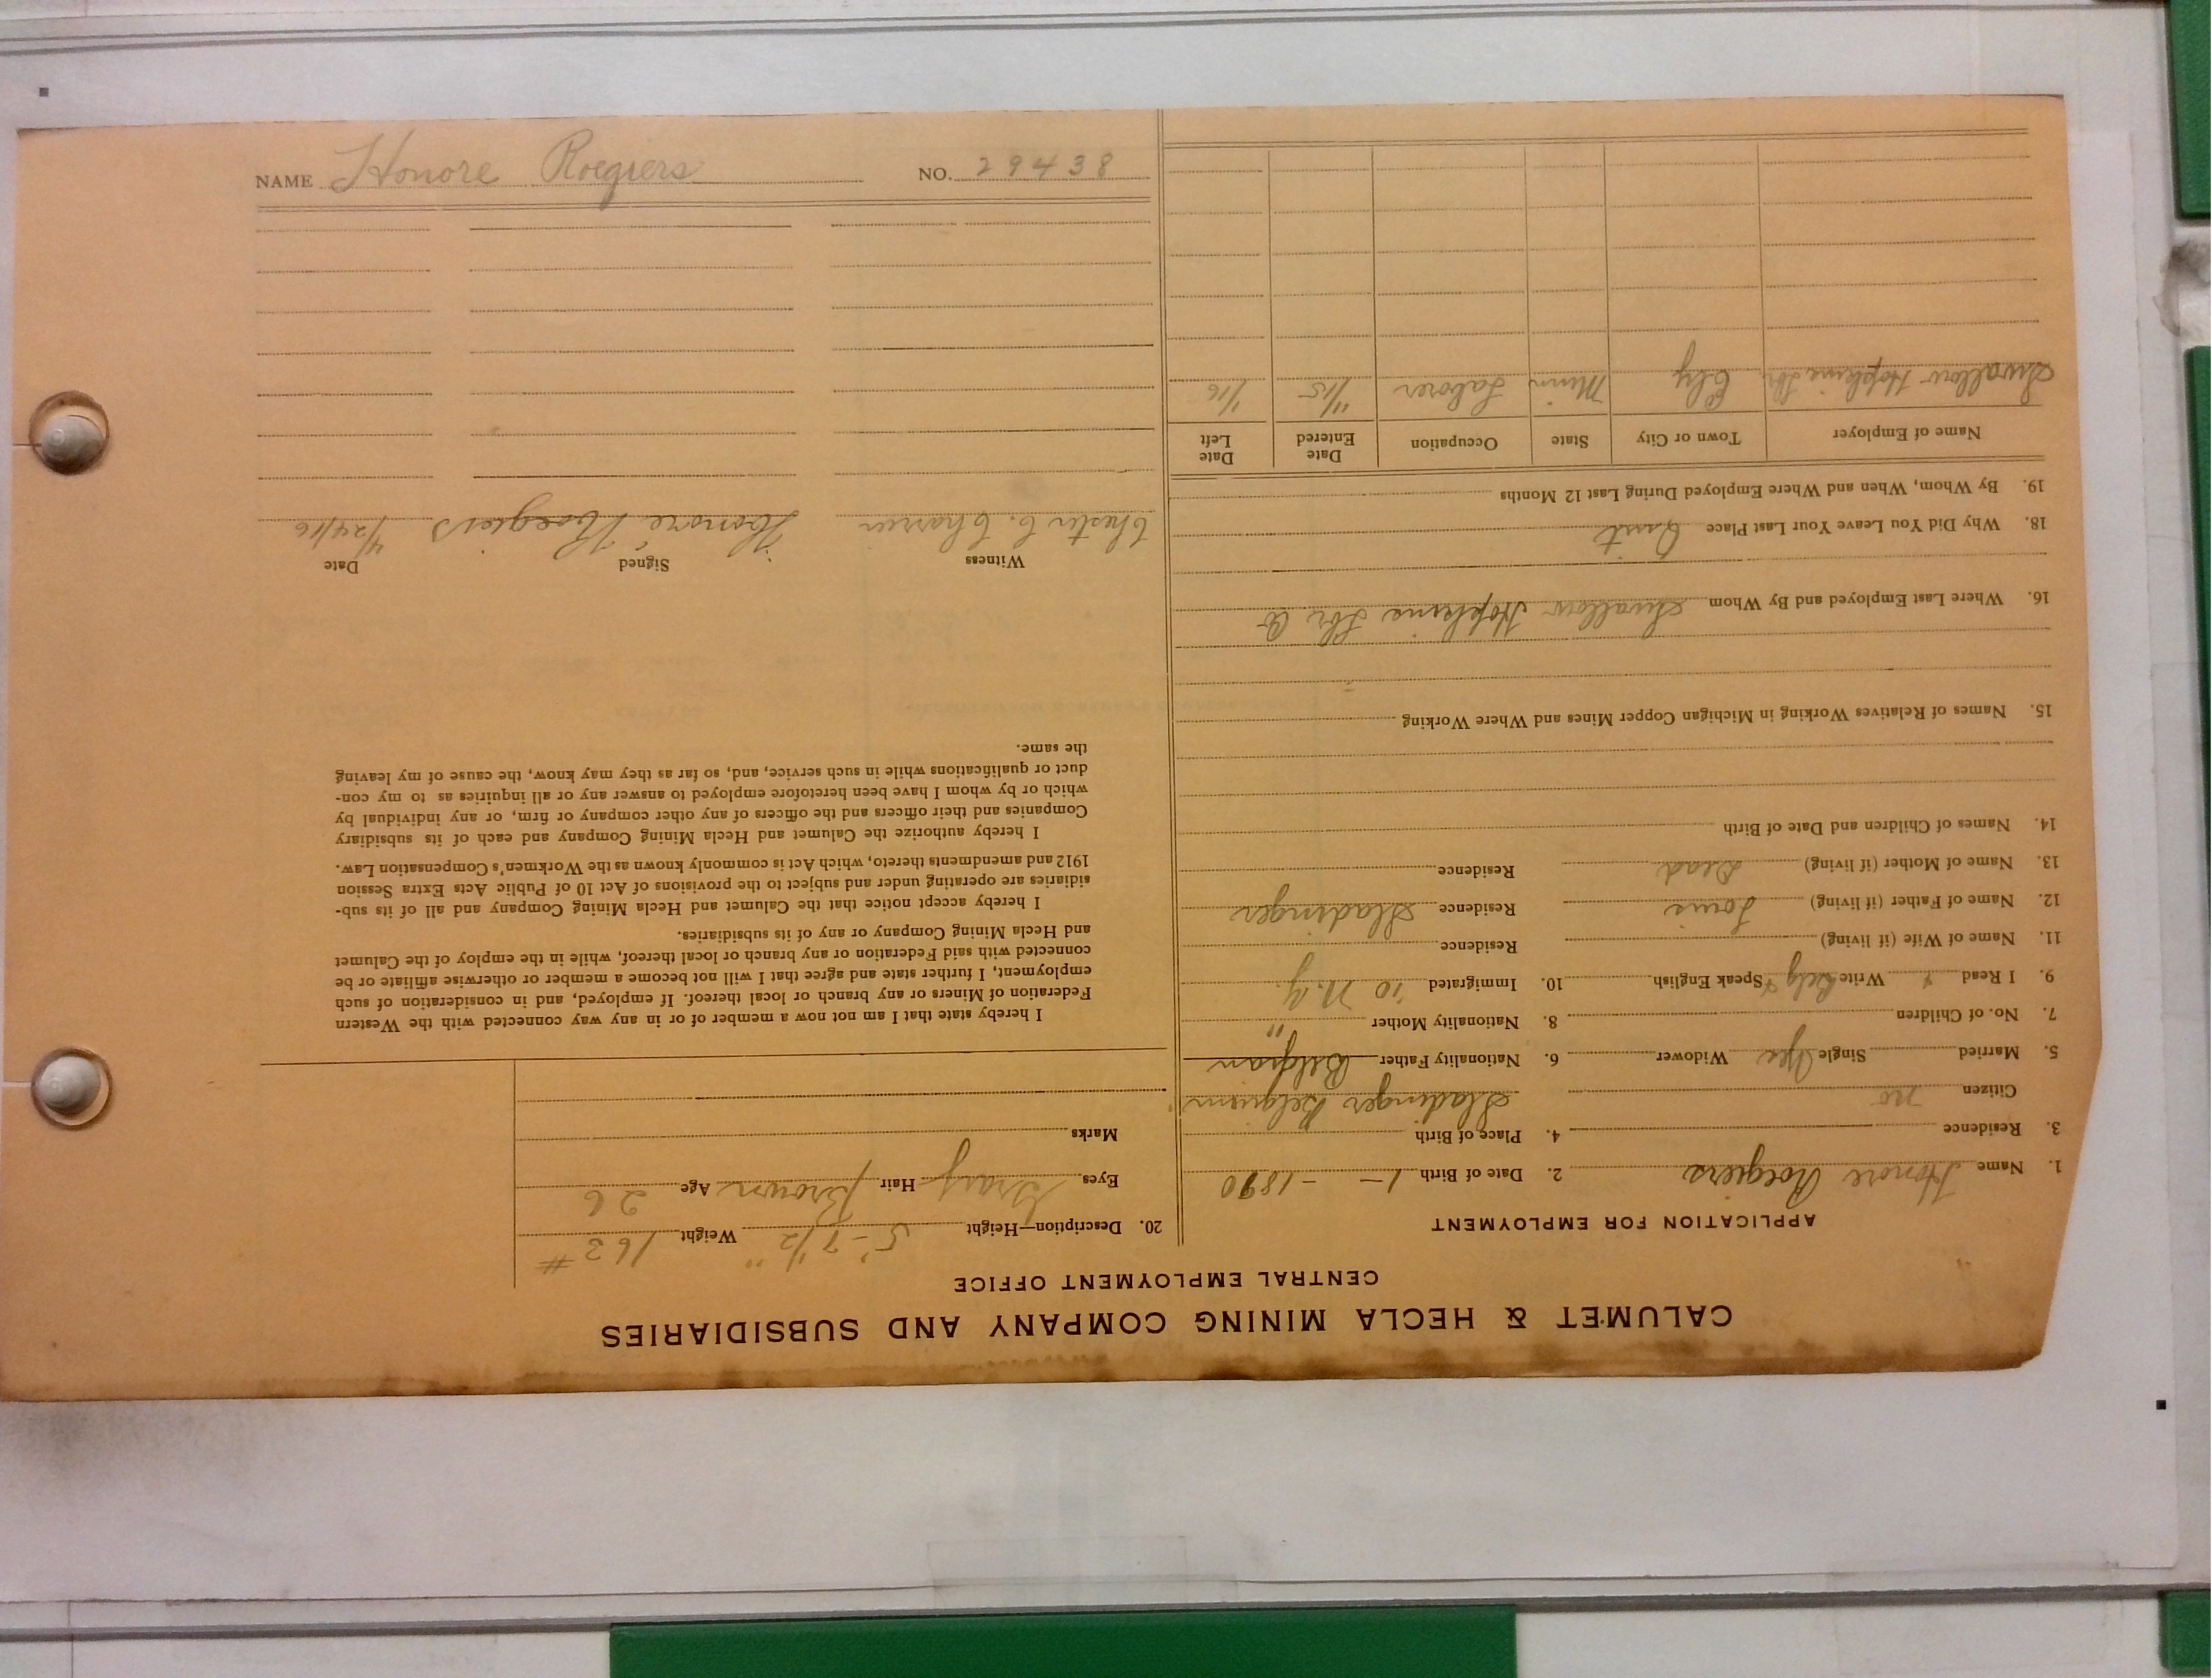 CALUMET & HECLA MINING COMPANY AND SUBSIDIARIES
CENTRAL EMPLOYMENT OFFICE
APPLICATION FOR EMPLOYMENT
1. Name Honore Roegiers 2. Date of Birth 1- - 1890
3. Residence 4. Place of Birth
Citizen no Sladinger Belguim
5. Married Single Yes Widower 6. Nationality Father Belgian
7. No. of Children 8. Nationality Mother "
9. I Read Write Belg Speak English. 10. Immigrated '10 N.Y.
11. Name of Wife (if living) Residence
12. Name of Father (if living) Louis Residence Sladinger
13. Name of Mother (if living) Dead Residence
14. Names of Children and Date of Birth
15. Names of Relatives Working in Michigan Copper Mines and Where Working
16. Where Last Employed and By Whom Swallow Hopkins Lbr Co
18. Why Did You Leave Your Last Place Quit
19. By Whom, When and Where Employed During Last 12 Months
Name of Employer Town or City State Occupation Date Entered Date Left
Swallow Hopkins Lbr. Ely Minn Laborer 11/15 1/16
20. Description—Height 5'-7 1/2" Weight 163 #
Eyes Gray Hair Brown Age 26
Marks
I hereby state that I am not now a member of or in any way connected with the Western
Federation of Miners or any branch or local thereof. If employed, and in consideration of such
employment, I further state and agree that I will not become a member or otherwise affiliate or be
connected with said Federation or any branch or local thereof, while in the employ of the Calumet
and Hecla Mining Company or any of its subsidiaries.
I hereby accept notice that the Calumet and Hecla Mining Company and all of its sub-
sidiaries are operating under and subject to the provisions of Act 10 of Public Acts Extra Session
1912 and amendments thereto, which Act is commonly known as the Workmen's Compensation Law.
I hereby authorize the Calumet and Hecla Mining Company and each of its subsidiary
Companies and their officers and the officers of any other company or firm, or any individual by
which or by whom I have been heretofore employed to answer any or all inquiries as to my con-
duct or qualifications while in such service, and, so far as they may know, the cause of my leaving
the same.
Witness Signed Date
Chester C. Honoré Roegiers 4/24/16
NAME Honore Roegiers NO. 29438